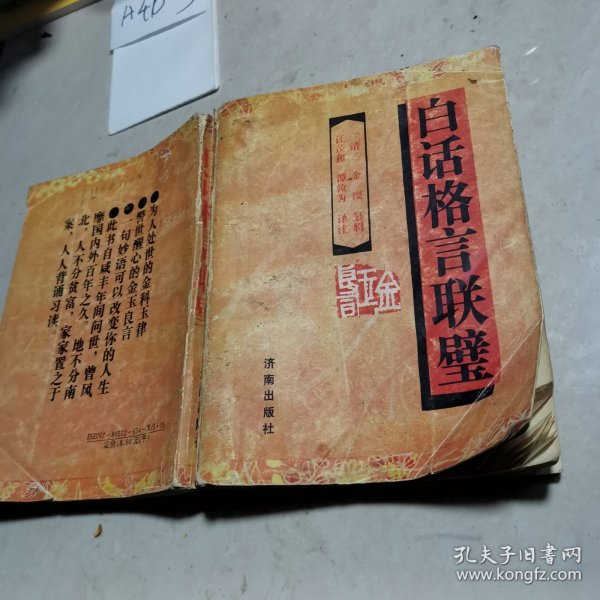 白话格言联璧
[清]金缨 纂辑
谭汝为 译注
金玉
良言
济南出版社
●为人处世的金科玉律
●警世醒心的金玉良言
●一句妙语可以改变你的人生
●此书自咸丰年间问世,曾风
靡国内外百年之久。地不分南
北,人不分贫富,家家置之于
案,人人背诵习读。
定价:8.50元(平)
孔夫子旧书网
www.kongfz.com